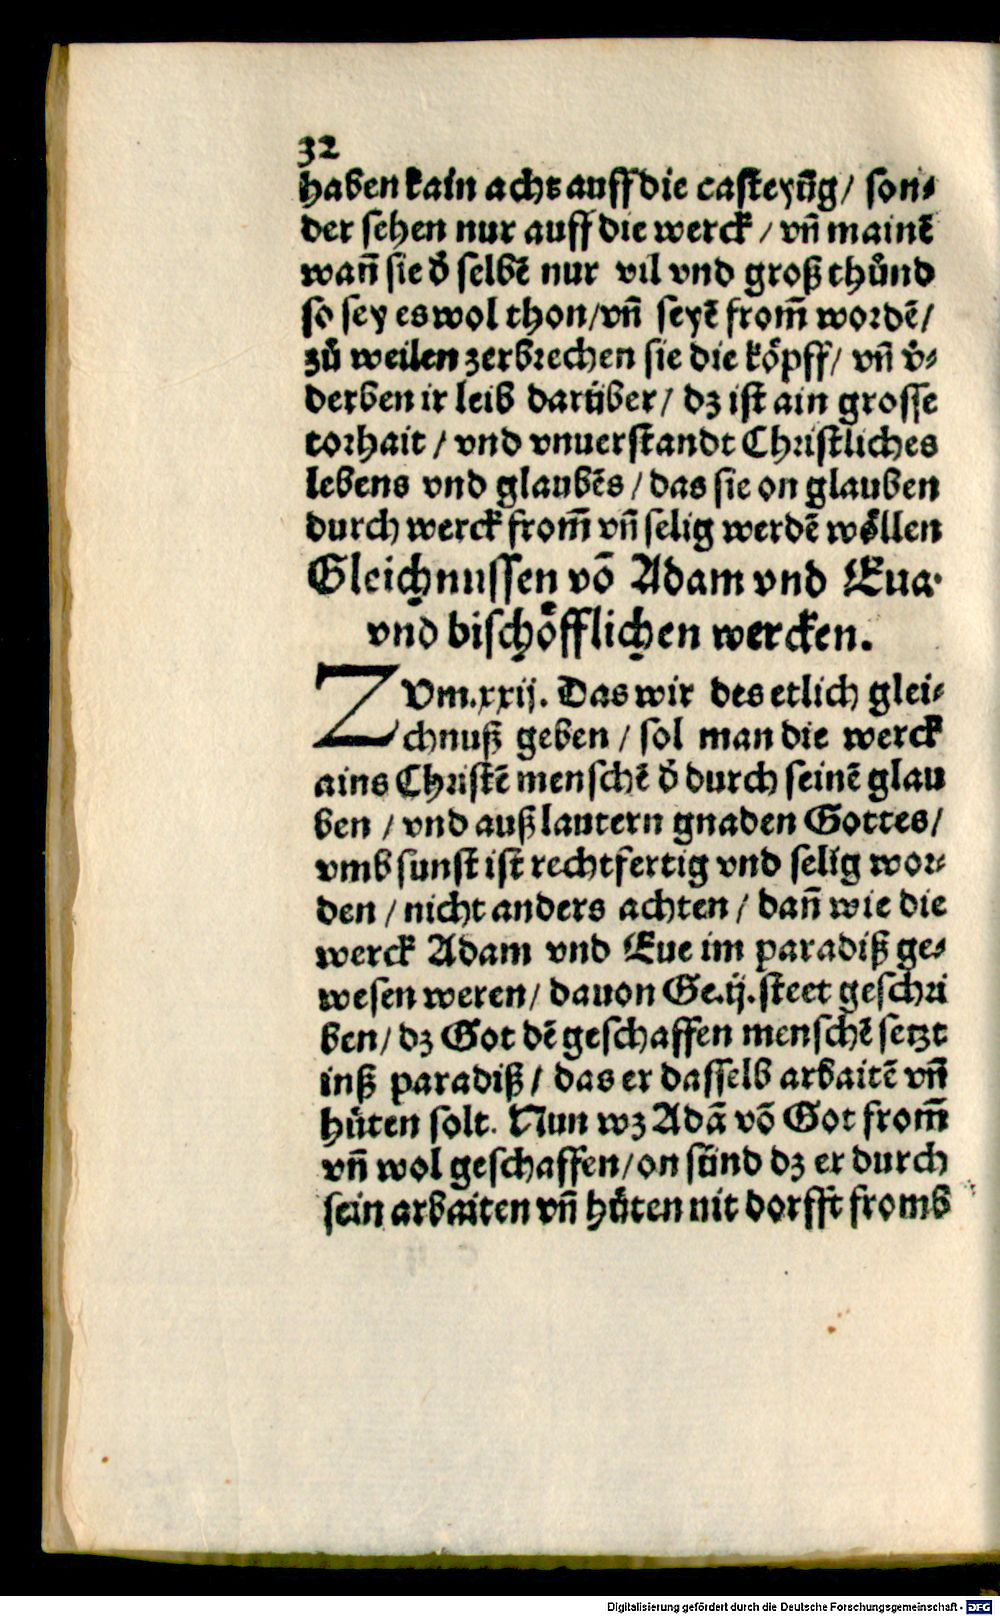 32
haben kain acht auff die casteyūg/ son⸗
der sehen nur auff die werck / vñ mainē
wañ sie d̕ selbē nur vil vnd groß thünd
so sey es wol thon/vñ seyē from̄ wordē/
zů weilen zerbrechen sie die köpff/ vñ v̕⸗
derben ir leib darüber/ dz ist ain grosse
torhait / vnd vnuerstandt Christliches
lebens vnd glaubēs / das sie on glauben
durch werck from̄ vñ selig werdē wöllen
Gleichnussen võ Adam vnd Eua·
vnd bischöfflichen wercken.
ZVm.xxij. Das wir des etlich glei⸗
chnuß geben / sol man die werck
ains Christē menschē d̕ durch seinē glau
ben / vnd auß lautern gnaden Gottes/
vmb sunst ist rechtfertig vnd selig wor⸗
den / nicht anders achten / dañ wie die
werck Adam vnd Eue im paradiß ge⸗
wesen weren/ dauon Ge.ij. steet geschri
ben/ dz Got dē geschaffen menschē setzt
inß paradiß / das er dasselb arbaitē vñ
hüten solt. Nun wz Adã võ Got from̄
vñ wol geschaffen/on sünd dz er durch
sein arbaiten vñ hüten nit dorfft fromb
Digitalisierung gefördert durch die Deutsche Forschungsgemeinschaft - DFG